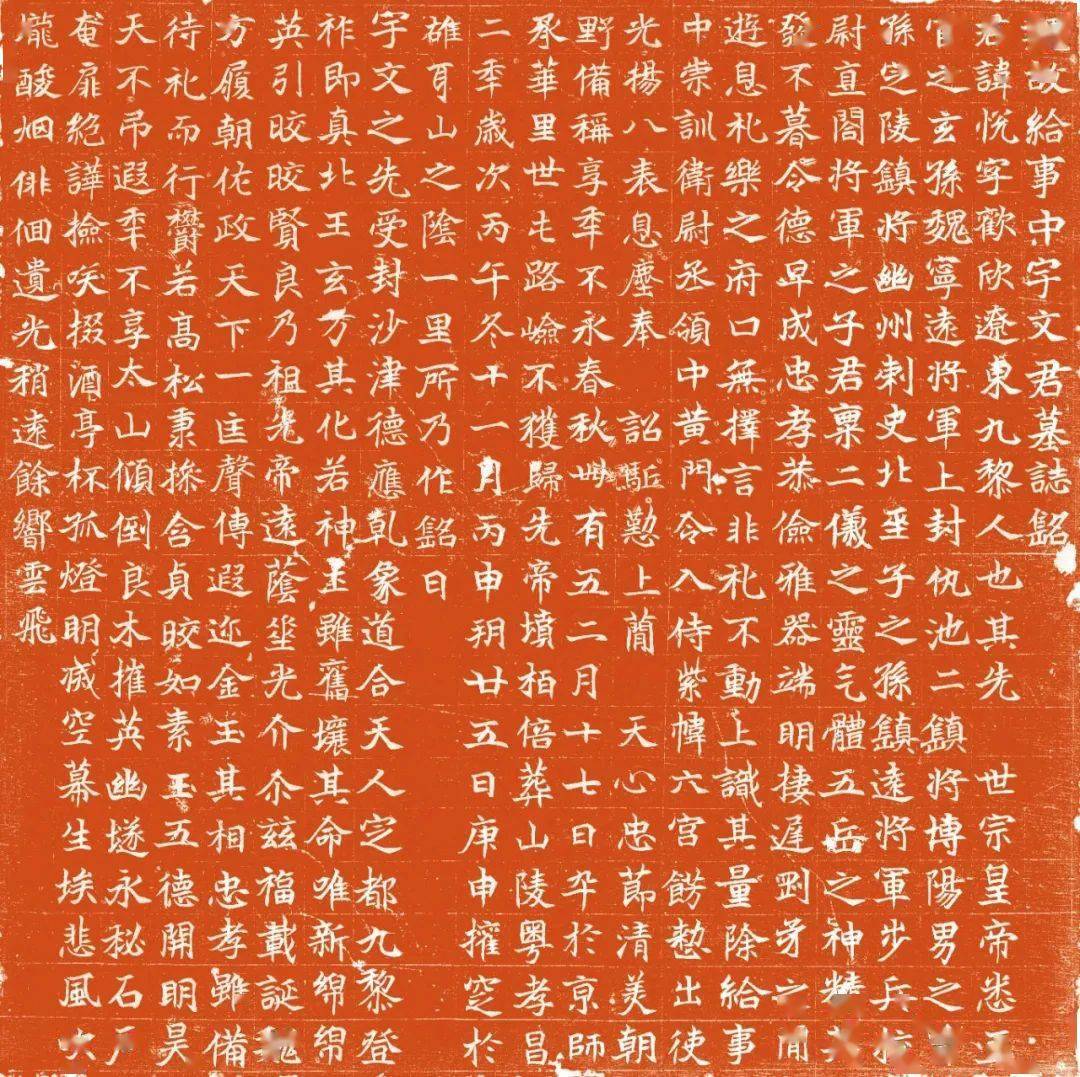 故給事中宇文君墓誌銘
君諱悅字歡欣遼東九黎人也其先　世宗皇帝悉
官之玄孫魏寧遠將軍上封仇池二鎮將博陽男之
孫定陵鎮將幽州刾史北平子之孫鎮遠將軍步兵校
尉直閤將軍之子君稟二儀之靈气體五岳之神精英
發不暮令德早成忠孝恭儉雅器端明棲遲之間
遊息礼樂之府口無擇言非礼不動上識其量除給事
中崇訓衛尉丞領中黃門令入侍紫幃六宮餝懃出使
光揚八表息塵奉　詔駈懃上蕳　天心忠節清美朝
野備稱享秊不永春秋卌有五二月十七日卒於京師
承華里世屯路嶮不獲歸先帝墳栢倍葬山陵粵孝昌
二秊歲次丙午冬十一月丙申朔廿五日庚申㩁窆於
雄耳山之陰一里所乃作銘曰
宇文之先受封沙津德應乾象道合天人定都九黎登
祚即真北王玄万其化若神土雖舊壤其命唯新綿綿
英引晈晈賢良乃祖羌帝遠蔭垂光介尒茲福載誕魏
方履朝佐政天下一匡聲傳遐迩金玉其相忠孝雖備
待礼而行欝若高松秉操含貞晈如素玉五德開明昊
天不吊遐秊不享太山傾倒良木摧英幽墜永秘石戸
奄扉絶譁撿咲掇酒亭杯孤燈明滅空幕生埃悲風吹
壠酸烟俳佪遺光稍遠餘響雲飛